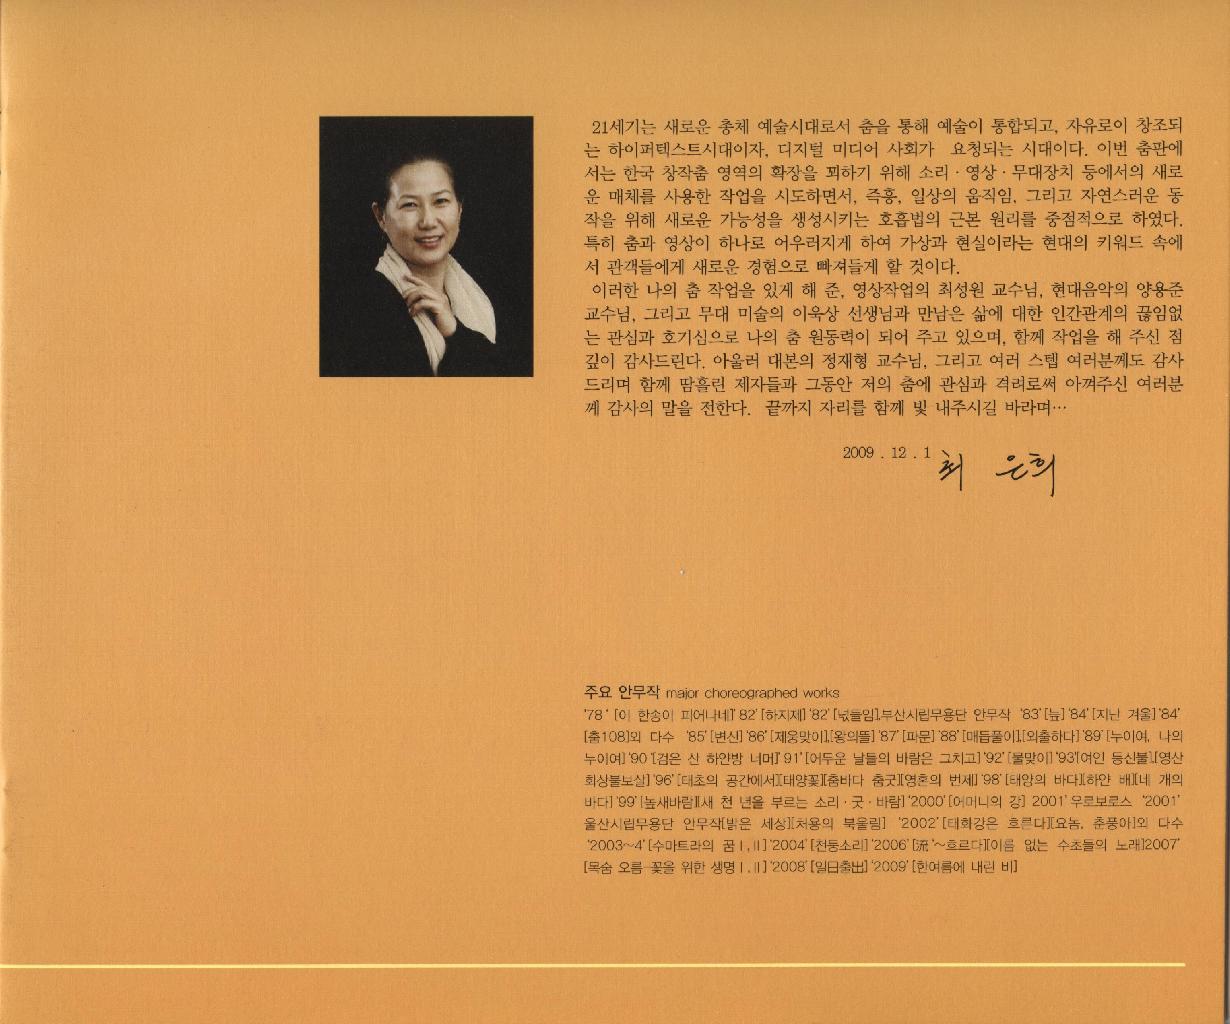 21세기는 새로운 총체 예술시대로서 춤을 통해 예술이 통합되고, 자유로이 창조되
는 하이퍼텍스트시대이자, 디지털 미디어 사회가 요청되는 시대이다. 이번 춤판에
서는 한국 창작춤 영역의 확장을 꾀하기 위해 소리 · 영상 · 무대장치 등에서의 새로
운 매체를 사용한 작업을 시도하면서, 즉흥, 일상의 움직임, 그리고 자연스러운 동
작을 위해 새로운 가능성을 생성시키는 호흡법의 근본 원리를 중점적으로 하였다.
특히 춤과 영상이 하나로 어우러지게 하여 가상과 현실이라는 현대의 키워드 속에
서 관객들에게 새로운 경험으로 빠져들게 할 것이다.
이러한 나의 춤 작업을 있게 해 준, 영상작업의 최성원 교수님, 현대음악의 양용준
교수님, 그리고 무대 미술의 이욱상 선생님과 만남은 삶에 대한 인간관계의 끊임없
는 관심과 호기심으로 나의 춤 원동력이 되어 주고 있으며, 함께 작업을 해 주신 점
깊이 감사드린다. 아울러 대본의 정재형 교수님, 그리고 여러 스텝 여러분께도 감사
드리며 함께 땀흘린 제자들과 그동안 저의 춤에 관심과 격려로써 아껴주신 여러분
께 감사의 말을 전한다. 끝까지 자리를 함께 빛 내주시길 바라며…
2009 . 12 . 1 최 은희
주요 안무작 major choreographed works
'78 ' [이 한송이 피어나네]' 82' [하지제] '82' [넋들임],부산시립무용단 안무작 '83' [늪] '84' [지난 겨울] '84'
[춤108]외 다수 '85' [변신] '86' [제웅맞이],[왕의뜰] '87' [파문] '88' [매듭풀이],[외출하다] '89' [누이여, 나의
누이여] '90 '[검은 산 하얀방 너머]' 91' [어두운 날들의 바람은 그치고] '92' [물맞이] '93'[여인 등신불],[영산
회상불보살] '96' [태초의 공간에서][태양꽃][춤바다 춤굿][영혼의 번제] '98' [태양의 바다][하얀 배][네 개의
바다] '99' [높새바람][새 천 년을 부르는 소리 · 굿 · 바람] '2000' [어머니의 강] 2001' 우로보로스 '2001'
울산시립무용단 안무작[밝은 세상][처용의 북울림] '2002' [태화강은 흐른다][요놈, 춘풍아]외 다수
'2003~4' [수마트라의 꿈Ⅰ,Ⅱ] '2004' [천둥소리] '2006' [流 '~흐르다][이름 없는 수초들의 노래]2007'
[목숨 오름-꽃을 위한 생명Ⅰ,Ⅱ] '2008' [일日출出] '2009' [한여름에 내린 비]